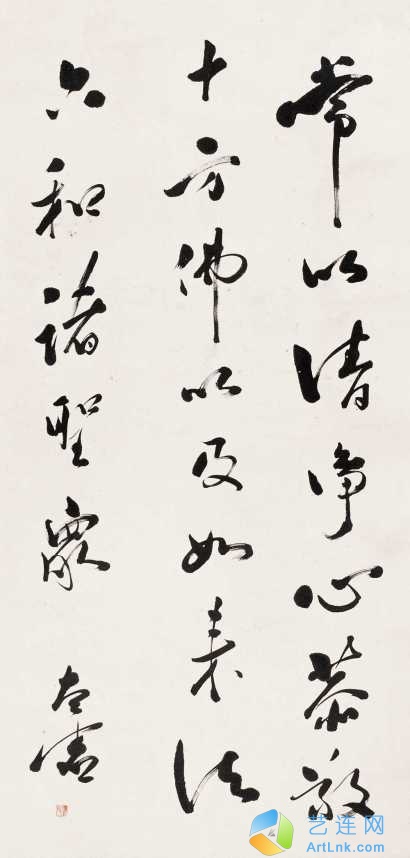 常以清淨心恭敬
十方佛以及如来法
六和諸聖眾
太虛
艺连网
ArtLnk.com